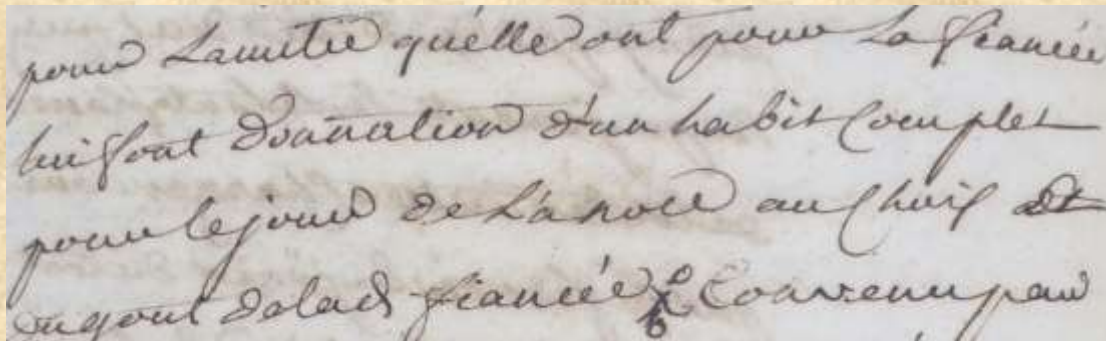 pour Lamitié quélle ont pour La fiancée
lui font donnation d'un habit Complet
pour le jour de L'anoce au Choix et
du gout delad fiancée Convenu par